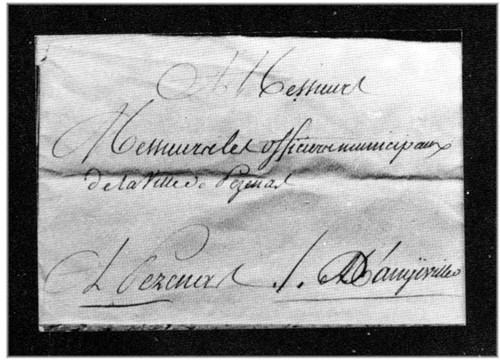 A Messieurs
Messieurs les officiers municipaux
de la Ville de Pezenas
A Pezenas ./. D'angiviller